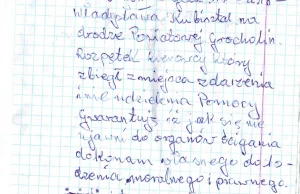 Władysława Kubinstal na
drodze Powiatowej Grocholin.
Rozpętał kierowcy który
zbiegł z miejsca zdarzenia
i nie udzielenia Pomocy
Gwarantuję iż jak się nie
ujawni do organów ścigania
dokonam własnego docho-
dzenia moralnego i prawnego.